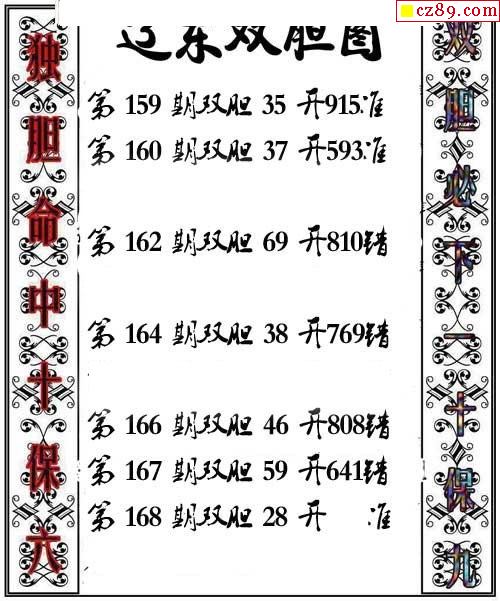 cz89.com
辽东双胆图
独胆命中十保六
第 159 期双胆 35 开915准
第 160 期双胆 37 开593准
第 162 期双胆 69 开810错
第 164 期双胆 38 开769错
第 166 期双胆 46 开808错
第 167 期双胆 59 开641错
第 168 期双胆 28 开 准
双胆必下一十保九